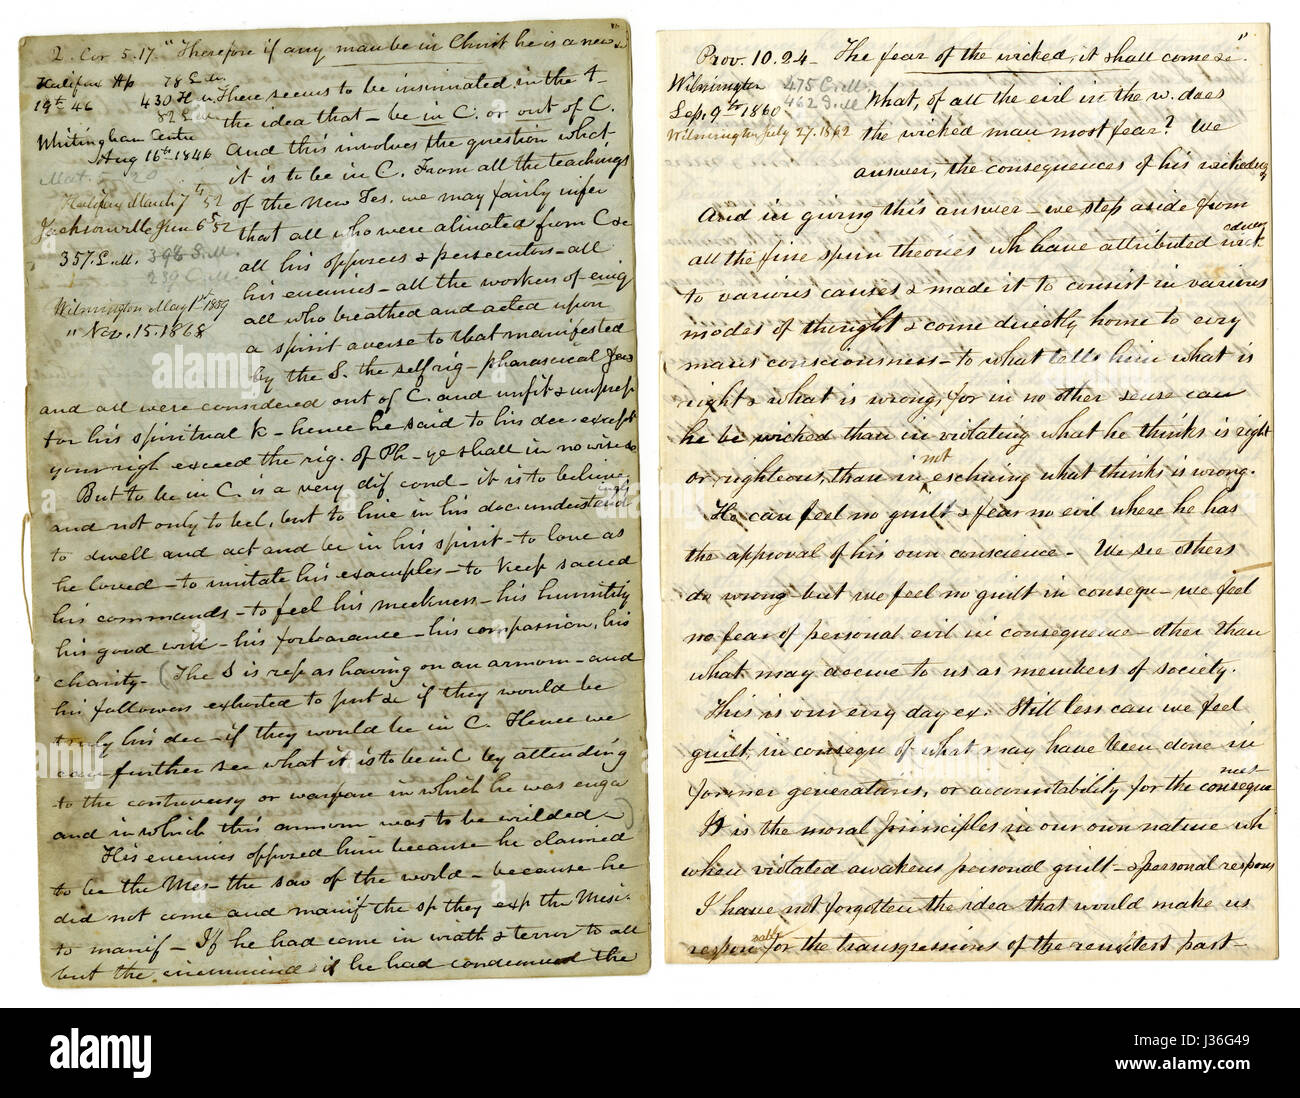 2. Cor. 5.17 "Therefore if any man be in Christ he is a new &c"
Halifax Ap 78 S.M.
19th 46 430 H
82 S.M.
Whitingham Centre
Aug 16th 1846
Mat. 5 20
Halifax March 7th 52
Jacksonville Jun 6 52
357. S.M. 396 S.M.
239 C.M.
Wilmington May 1st 1859
" Nov. 15. 1868
There seems to be insinuated in the t
the idea that - be in C. or out of C.
And this involves the question what
it is to be in C. From all the teachings
of the New Tes. we may fairly infer
that all who were alinated from C &c
all his opposers & persecutors - all
his enemies - all the workers of iniq
all who breathed and acted upon
a spirit averse to that manifested
by the S. the self rig - pharasical Jews
and all were considered out of C. and unfit & unprep
for his spiritual K - hence he said to his dec. except
your righ exceed the rig. of Ph - ye shall in no wise &c
But to be in C. is a very dif cond - it is to believe
and not only to bel, but to live in his doc. understand
to dwell and act and be in his spirit - to love as
he loved - to imitate his examples - to keep sacred
his commands - to feel his meekness - his humility
his good will - his forbarance - his compassion, his
charity - (The S is rep as having on an armom - and
his followers exhorted to put &c if they would be
truly his dec - if they would be in C. Hence we
can further see what it is to be in C by attending
to the controversy or warfare in which he was enga
and in which this armom was to be wielded -
His enemies opposed him because he claimed
to be the Mes - the sav of the world - because he
did not come and manif the sp they exp the Messi-
to manif - If he had come in wrath & terror to all
but the circumcised if he had condemned the
Prov. 10.24 - The fear of the wicked, it shall come &c"
Wilmington 475 C.M.
Sep. 9th 1860 462 S.M
Wilmington July 27. 1862
What, of all the evil in the w. does
the wicked man most fear? We
answer, the consequences of his wickedness
And in giving this answer - we step aside from
all the fine spun theories wh have attributed wick
edness
to various causes & made it to consist in various
modes of thought & come directly home to evry
mans consciousness - to what tells him what is
right & what is wrong, for in no other sense can
he be wicked than in violating what he thinks is right
or righteous, than in not eschuing what thinks is wrong.
He can feel no guilt & fear no evil where he has
the approval of his own conscience - We see others
do wrong but we feel no guilt in consequ - we feel
no fear of personal evil in consequence - other than
what may accrue to us as members of society.
This is our evry day ex. Still less can we feel
guilt, in consequ of what may have been done in
former generations, or accountability for the conseque
It is the moral principles in our own nature wh
when violated awakens personal guilt - & personal respons
I have not forgotten the idea that would make us
respon sable for the transgressions of the remotest past -
alamy
Image ID: J36G49
www.alamy.com